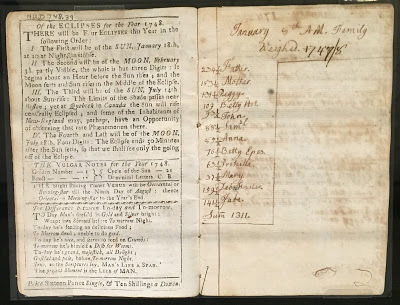 Of the ECLIPSES for the Year 1748.
THERE will be FOUR ECLIPSES this Year in the
following Order;
I. The First will be of the SUN, January 18th,
at 10 at Night, Invisible.
II The Second will be of the MOON, February
3d, partly Visible, the whole is but three Digits: It
begins about an Hour before the Sun rises; and the
Moon sets and Sun rises in the Middle of the Eclipse.
III. The Third will be of the SUN, July 14th
about Sun-rise: The Limits of the Shade passes near
Boston; yet at Quebeck in Canada the Sun will rise
centrally Eclipsed; and some of the Inhabitants of
New-England may, perhaps, have an Opportunity
of observing that rare Phænomenon there.
IV. The Fourth and Last will be of the MOON,
July 28th, Four Digits: The Eclipse ends 30 Minutes
after the Sun sets, so that we shall see only the going
off of the Eclipse.
THE VULGAR NOTES for the Year 1748.
Golden Number — Cycle of the Sun —
Epact — Dominical Letters C. B.
THE bright Blazing Planet VENUS will be Occidental or
Evening-Star till the Ninth Day of August; thence
Oriental or Morning-Star to the Year's End
The Difference between To-day and To-morrow.
TO Day Man's dress'd in Gold and Silver bright;
Wrapt in a Shroud before To-morrow Night.
To-day he's feeding on delicious Food;
To Morrow dead; unable to do good.
To-day he's nice, and scorns to feed on Crumbs;
To-morrow he's himself a Dish for Worms.
To-day he's grand, majestick, all Delight;
Ghastful and pale, before To-morrow Night.
True, as the Scripture says, MAN's LIFE'S A SPAN.
The present Moment is the LIFE of MAN.
Price Sixteen Pence Single, & Ten Shillings a Dozen.
January 8th A.M. Family
Weighed. 1747/8
Father
Mother
Peggy
109 Betty Hol
John
Saml
Anna
Betty Eyer
Priscilla
Mary
Pete
Sum 1311